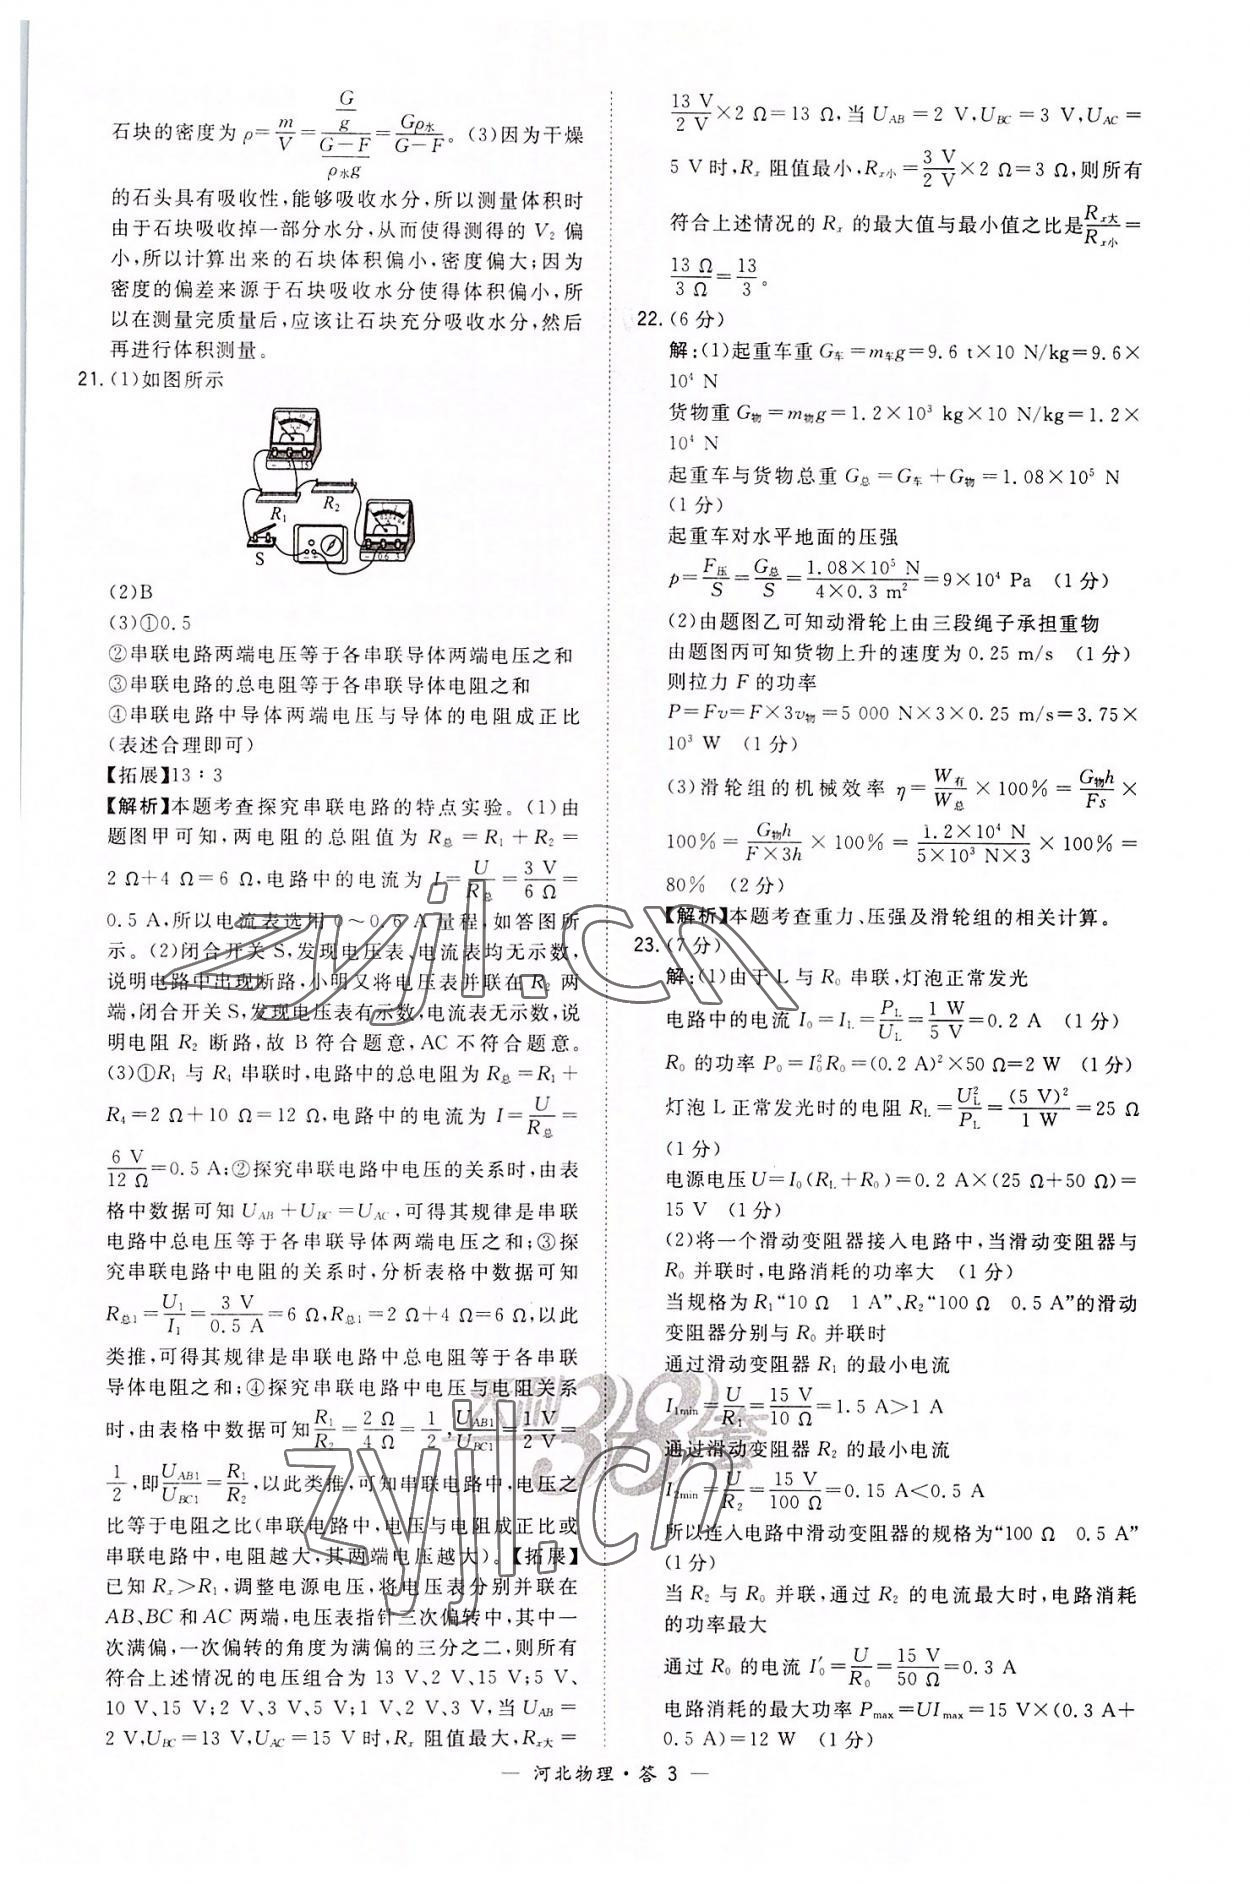 石块的密度为 ρ=m/V=(G/g)/((G-F)/(ρ水g))=Gρ水/(G-F)。(3)因为干燥
的石头具有吸收性,能够吸收水分,所以测量体积时
由于石块吸收掉一部分水分,从而使得测得的 V₂ 偏
小,所以计算出来的石块体积偏小,密度偏大;因为
密度的偏差来源于石块吸收水分使得体积偏小,所
以在测量完质量后,应该让石块充分吸收水分,然后
再进行体积测量。
21. (1)如图所示
R₁ R₂ S
(2)B
(3)①0.5
②串联电路两端电压等于各串联导体两端电压之和
③串联电路的总电阻等于各串联导体电阻之和
④串联电路中导体两端电压与导体的电阻成正比
(表述合理即可)
【拓展】13∶3
【解析】本题考查探究串联电路的特点实验。(1)由
题图甲可知,两电阻的总阻值为 R总=R₁+R₂=
2 Ω+4 Ω=6 Ω,电路中的电流为 I=U/R总=3 V/6 Ω=
0.5 A,所以电流表选用 0～0.6 A 量程,如答图所
示。(2)闭合开关 S,发现电压表、电流表均无示数,
说明电路中出现断路,小明又将电压表并联在 R₂ 两
端,闭合开关 S,发现电压表有示数,电流表无示数,说
明电阻 R₂ 断路,故 B 符合题意,AC 不符合题意。
(3)①R₁ 与 R₄ 串联时,电路中的总电阻为 R总=R₁+
R₄=2 Ω+10 Ω=12 Ω,电路中的电流为 I=U/R总=
6 V/12 Ω=0.5 A;②探究串联电路中电压的关系时,由表
格中数据可知 U_AB+U_BC=U_AC,可得其规律是串联
电路中总电压等于各串联导体两端电压之和;③探
究串联电路中电阻的关系时,分析表格中数据可知
R总1=U₁/I₁=3 V/0.5 A=6 Ω,R总1=2 Ω+4 Ω=6 Ω,以此
类推,可得其规律是串联电路中总电阻等于各串联
导体电阻之和;④探究串联电路中电压与电阻关系
时,由表格中数据可知R₁/R₂=2 Ω/4 Ω=1/2,U_AB1/U_BC1=1 V/2 V=
1/2,即U_AB1/U_BC1=R₁/R₂,以此类推,可知串联电路中,电压之
比等于电阻之比(串联电路中,电压与电阻成正比或
串联电路中,电阻越大,其两端电压越大)。【拓展】
已知 Rₓ>R₁,调整电源电压,将电压表分别并联在
AB、BC和 AC 两端,电压表指针三次偏转中,其中一
次满偏,一次偏转的角度为满偏的三分之二,则所有
符合上述情况的电压组合为 13 V、2 V、15 V;5 V、
10 V、15 V;2 V、1 V、3 V;1 V、2 V、3 V,当 U_AB=
2 V,U_BC=13 V,U_AC=15 V 时,Rₓ 阻值最大,Rₓ大=
13 V/2 V×2 Ω=13 Ω,当 U_AB=2 V,U_BC=3 V,U_AC=
5 V 时,Rₓ 阻值最小,Rₓ小=3 V/2 V×2 Ω=3 Ω,则所有
符合上述情况的 Rₓ 的最大值与最小值之比是Rₓ大/Rₓ小=
13 Ω/3 Ω=13/3。
22. (6 分)
解:(1)起重车重 G车=m车g=9.6 t×10 N/kg=9.6×
10⁴ N
货物重 G物=m物g=1.2×10³ kg×10 N/kg=1.2×
10⁴ N
起重车与货物总重 G总=G车+G物=1.08×10⁵ N
(1 分)
起重车对水平地面的压强
p=F压/S=G总/S=1.08×10⁵ N/(4×0.3 m²)=9×10⁴ Pa (1 分)
(2)由题图乙可知动滑轮上由三段绳子承担重物
由题图丙可知货物上升的速度为 0.25 m/s (1 分)
则拉力 F 的功率
P=Fv=F×3v物=5 000 N×3×0.25 m/s=3.75×
10³ W (1 分)
(3)滑轮组的机械效率 η=W有/W总×100%=G物h/Fs×
100%=G物h/(F×3h)×100%=1.2×10⁴ N/(5×10³ N×3)×100%=
80% (2 分)
【解析】本题考查重力、压强及滑轮组的相关计算。
23. (7 分)
解:(1)由于 L 与 R₀ 串联,灯泡正常发光
电路中的电流 I₀=I_L=P_L/U_L=1 W/5 V=0.2 A (1 分)
R₀ 的功率 P₀=I₀²R₀=(0.2 A)²×50 Ω=2 W (1 分)
灯泡 L 正常发光时的电阻 R_L=U_L²/P_L=(5 V)²/1 W=25 Ω
(1 分)
电源电压 U=I₀(R_L+R₀)=0.2 A×(25 Ω+50 Ω)=
15 V (1 分)
(2)将一个滑动变阻器接入电路中,当滑动变阻器与
R₀ 并联时,电路消耗的功率大 (1 分)
当规格为 R₁“10 Ω 1 A”、R₂“100 Ω 0.5 A”的滑动
变阻器分别与 R₀ 并联时
通过滑动变阻器 R₁ 的最小电流
I₁min=U/R₁=15 V/10 Ω=1.5 A>1 A
通过滑动变阻器 R₂ 的最小电流
I₂min=U/R₂=15 V/100 Ω=0.15 A<0.5 A
所以连入电路中滑动变阻器的规格为“100 Ω 0.5 A”
(1 分)
当 R₂ 与 R₀ 并联,通过 R₂ 的电流最大时,电路消耗
的功率最大
通过 R₀ 的电流 I₀′=U/R₀=15 V/50 Ω=0.3 A
电路消耗的最大功率 Pmax=UImax=15 V×(0.3 A+
0.5 A)=12 W (1 分)
— 河北物理·答 3 —
zyjl.cn
天利38套
zyjl.cn